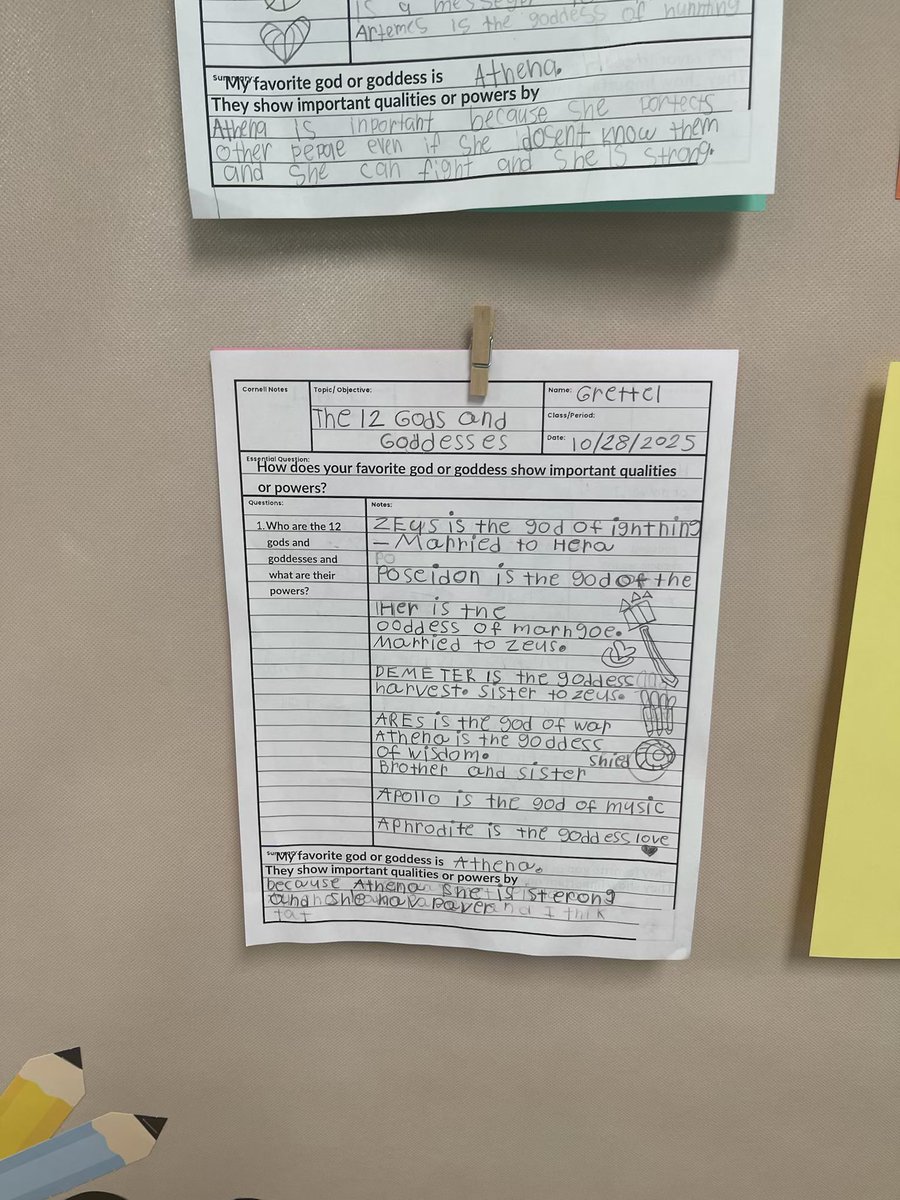 Artemes is the goddess of hunting
Summary:
My favorite god or goddess is Athena.
They show important qualities or powers by
Athena is inportant because she portects
other pepole even if she dosent know them
and she can fight and she is strong.
Cornell Notes
Topic/Objective:
The 12 Gods and
Goddesses
Name: Grettel
Class/Period:
Date: 10/28/2025
Essential Question:
How does your favorite god or goddess show important qualities
or powers?
Questions:
1. Who are the 12
gods and
goddesses and
what are their
powers?
Notes:
ZEus is the god of ightning
- Married to Hera
PO
Poseidon is the god of the
Her is the
goddess of
Married to Zeus.
DEMETER IS the goddess
harvest. Sister to zeus.
ARES is the god of war
Athena is the goddess
of wisdom.
Shied
Brother and sister
Apollo is the god of music
Aphrodite is the goddess love
Summary:
My favorite god or goddess is Athena.
They show important qualities or powers by
because Athena she is sterong
and she hav paver and I thik
tat